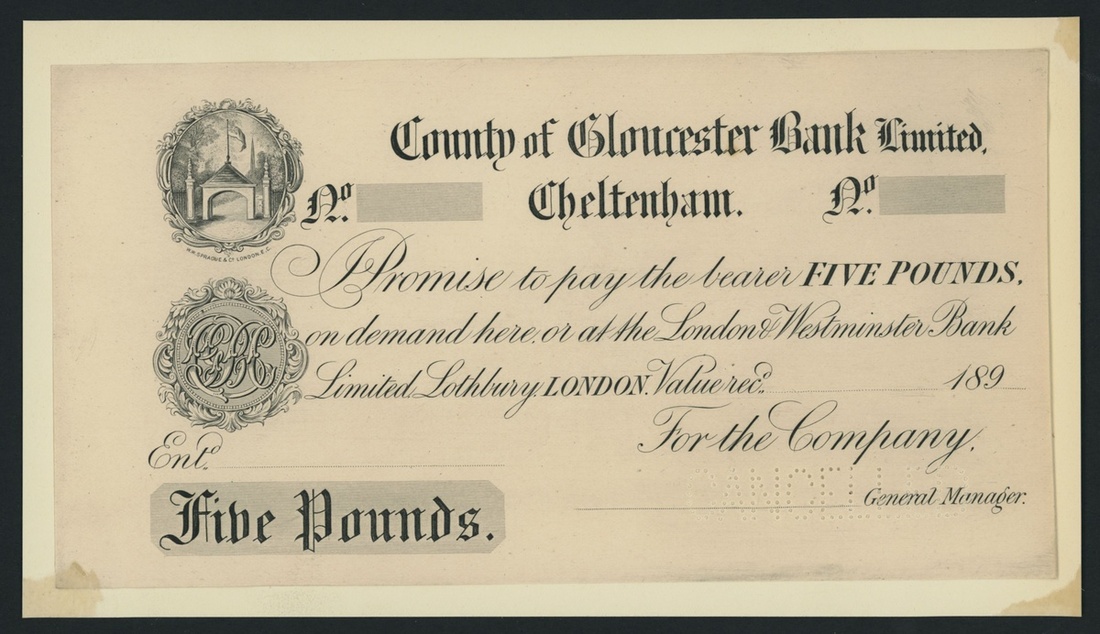 County of Gloucester Bank Limited,
No. Cheltenham. No.
W.W. SPRAGUE & Co. LONDON, E.C.
I Promise to pay the bearer FIVE POUNDS,
on demand here, or at the London & Westminster Bank
Limited, Lothbury, LONDON. Value recd. 189
For the Company,
Entd.
CANCELLED
General Manager.
Five Pounds.